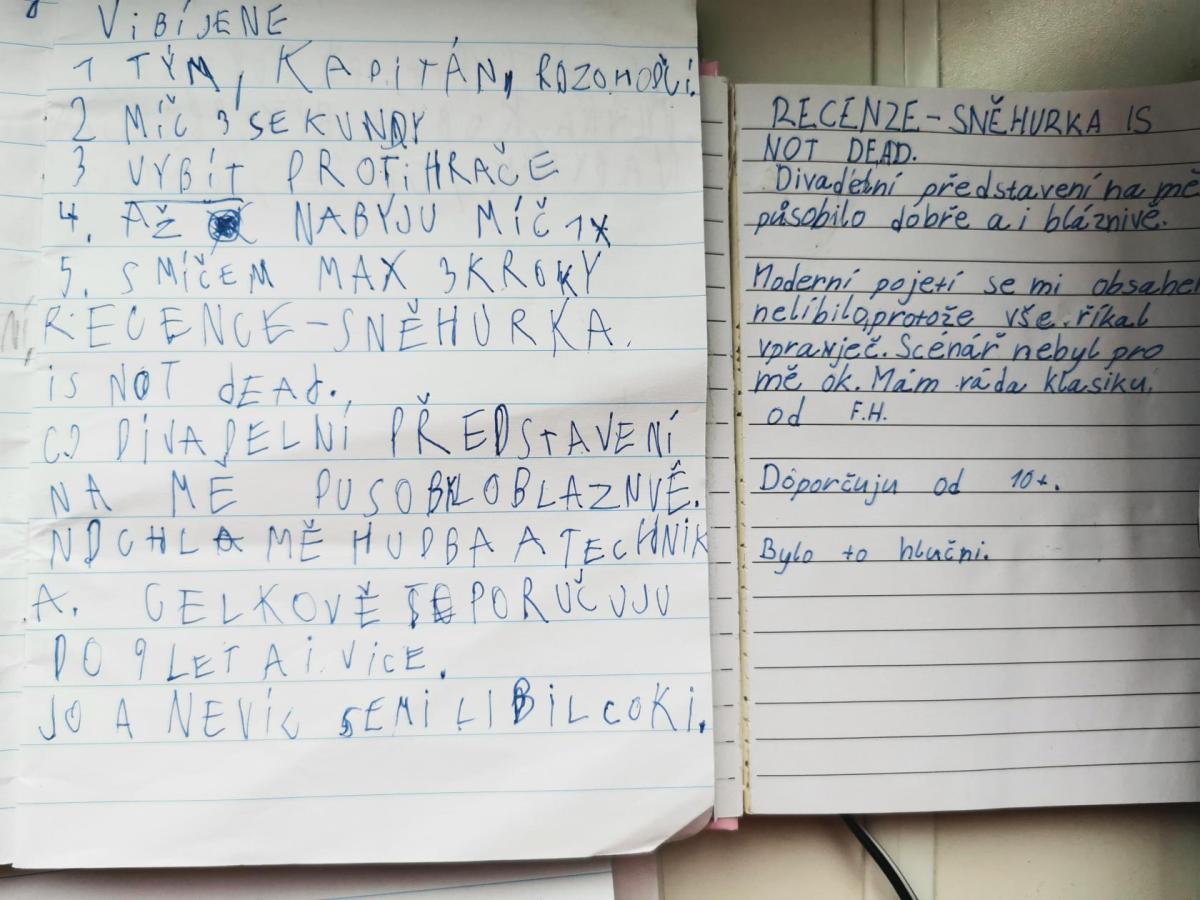 ViBÍJENE
1 TÝM, KAPITÁN, ROZOHODČÍ.
2 MÍČ 3 SEKUNDY
3 VYBÍT PROTiHRAČE
4. AŽ NABYJU MÍČ 1X
5. S MÍČEM MAX 3KROKY
RECENCE-SNĚHURKA.
iS NOT dEAd.
CO DIVADELNÍ PŘEDSTAVENÍ
NA MĚ PUSOBYLOBLAZNVĚ.
NDCHLA MĚ HUDBA A TECHNIK
A. CELKOVĚ PORUČUJU
DO 9 LET A i. VíCE.
JO A NEVÍC SEMI LIBIL COKI.
RECENZE-SNĚHURKA IS
NOT DEAD.
Divadelní představení na mě
působilo dobře a i bláznivě.
Moderní pojetí se mi obsahem
nelíbilo, protože vše říkal
vpravječ. Scénář nebyl pro
mě ok. Mám ráda klasiku
od F.H.
Dóporčuju od 10+.
Bylo to hlučni.